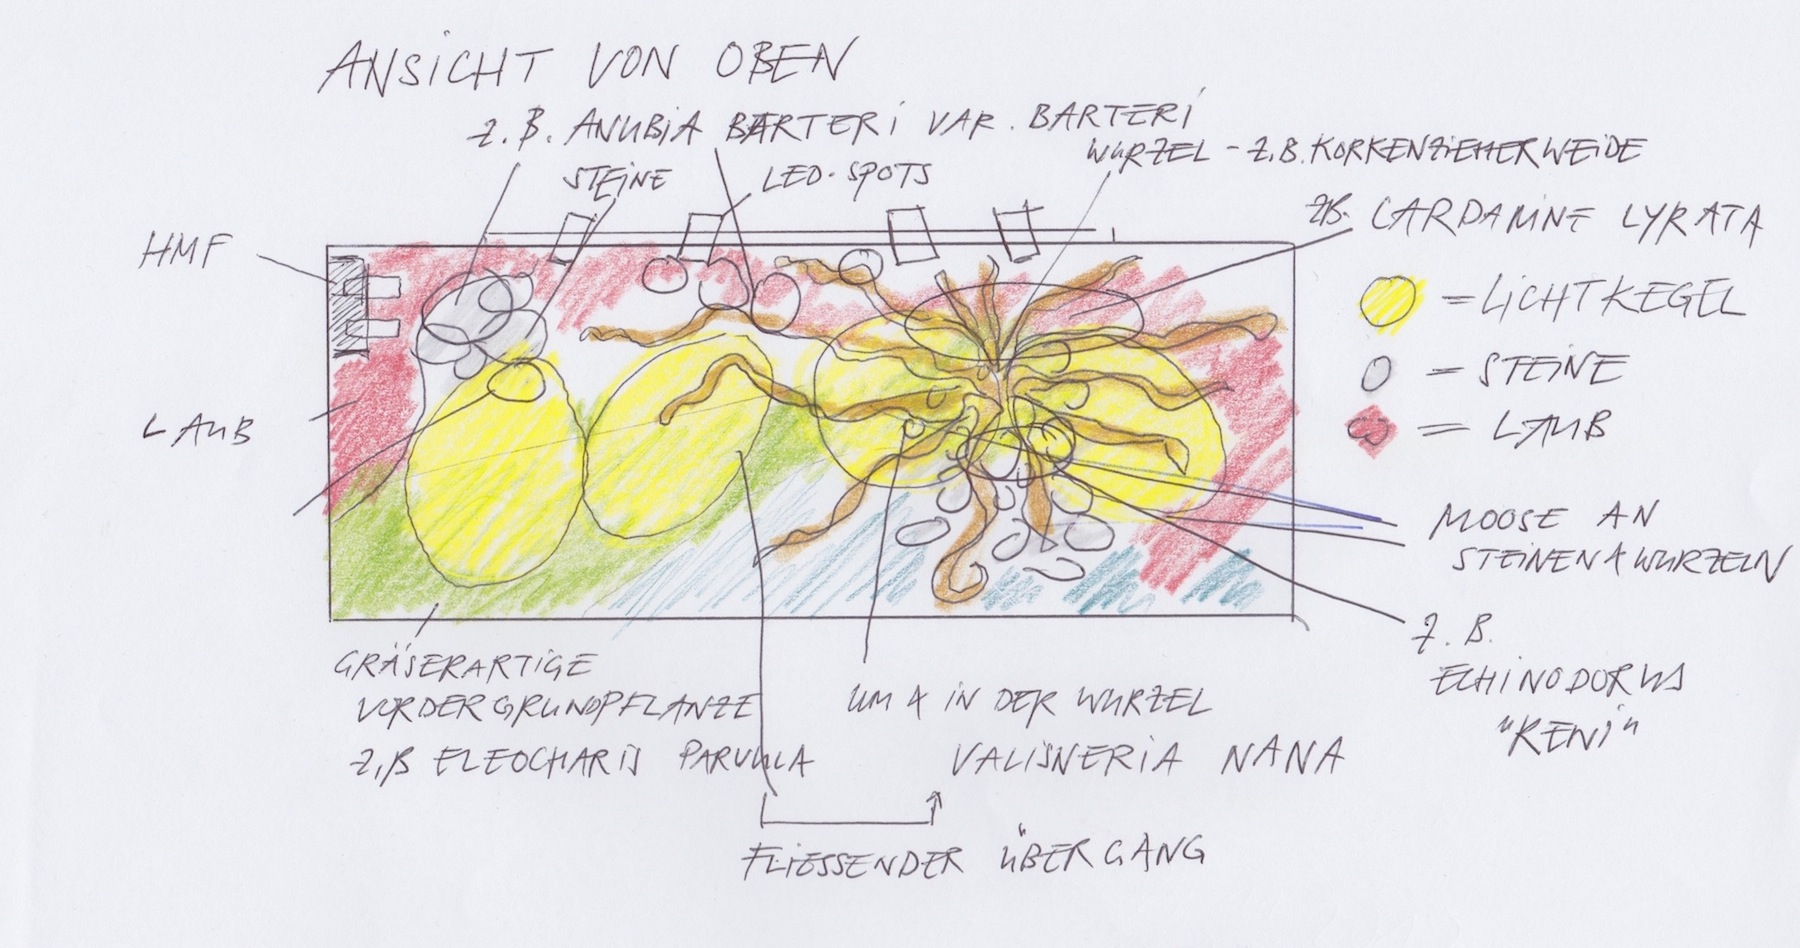 ANSICHT VON OBEN
Z.B. ANUBIA BARTERI VAR. BARTERI
WURZEL - Z.B. KORKENZIEHERWEIDE
STEINE
LED-SPOTS
ZB. CARDAMINE LYRATA
HMF
= LICHTKEGEL
= STEINE
= LAUB
LAUB
MOOSE AN
STEINEN & WURZELN
Z.B.
ECHINODORUS
"RENI"
GRÄSERARTIGE
VORDERGRUNDPFLANZE
Z,B ELEOCHARIS PARVULA
UM & IN DER WURZEL
VALISNERIA NANA
FLIESSENDER ÜBERGANG